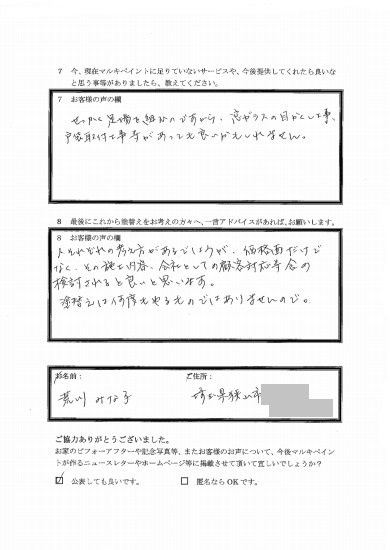 7 今、現在マルキペイントに足りていないサービスや、今後提供してくれたら良いな
と思う事等がありましたら、教えてください。
7 お客様の声の欄
せっかく足場を組むのですから、窓ガラスの目かくし工事、
戸袋取付工事等があっても良いかもしれません。
8 最後にこれから塗替えをお考えの方々へ、一言アドバイスがあれば、お願いします。
8 お客様の声の欄
人それぞれの考え方があるでしょうが、価格面だけで
なく、その施工内容、会社としての顧客対応等含め
検討されると良いと思います。
塗替えは何度もやるものではありませんので。
お名前：
荒川 みな子
ご住所：
埼玉県狭山市
ご協力ありがとうございました。
お家のビフォーアフターや記念写真等、またお客様のお声について、今後マルキペイン
トが作るニュースレターやホームページ等に掲載させて頂いて宜しいでしょうか？
公表しても良いです。
匿名なら OK です。